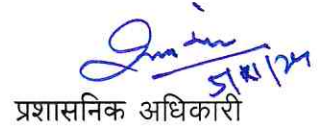 5/11/24
प्रशासनिक अधिकारी